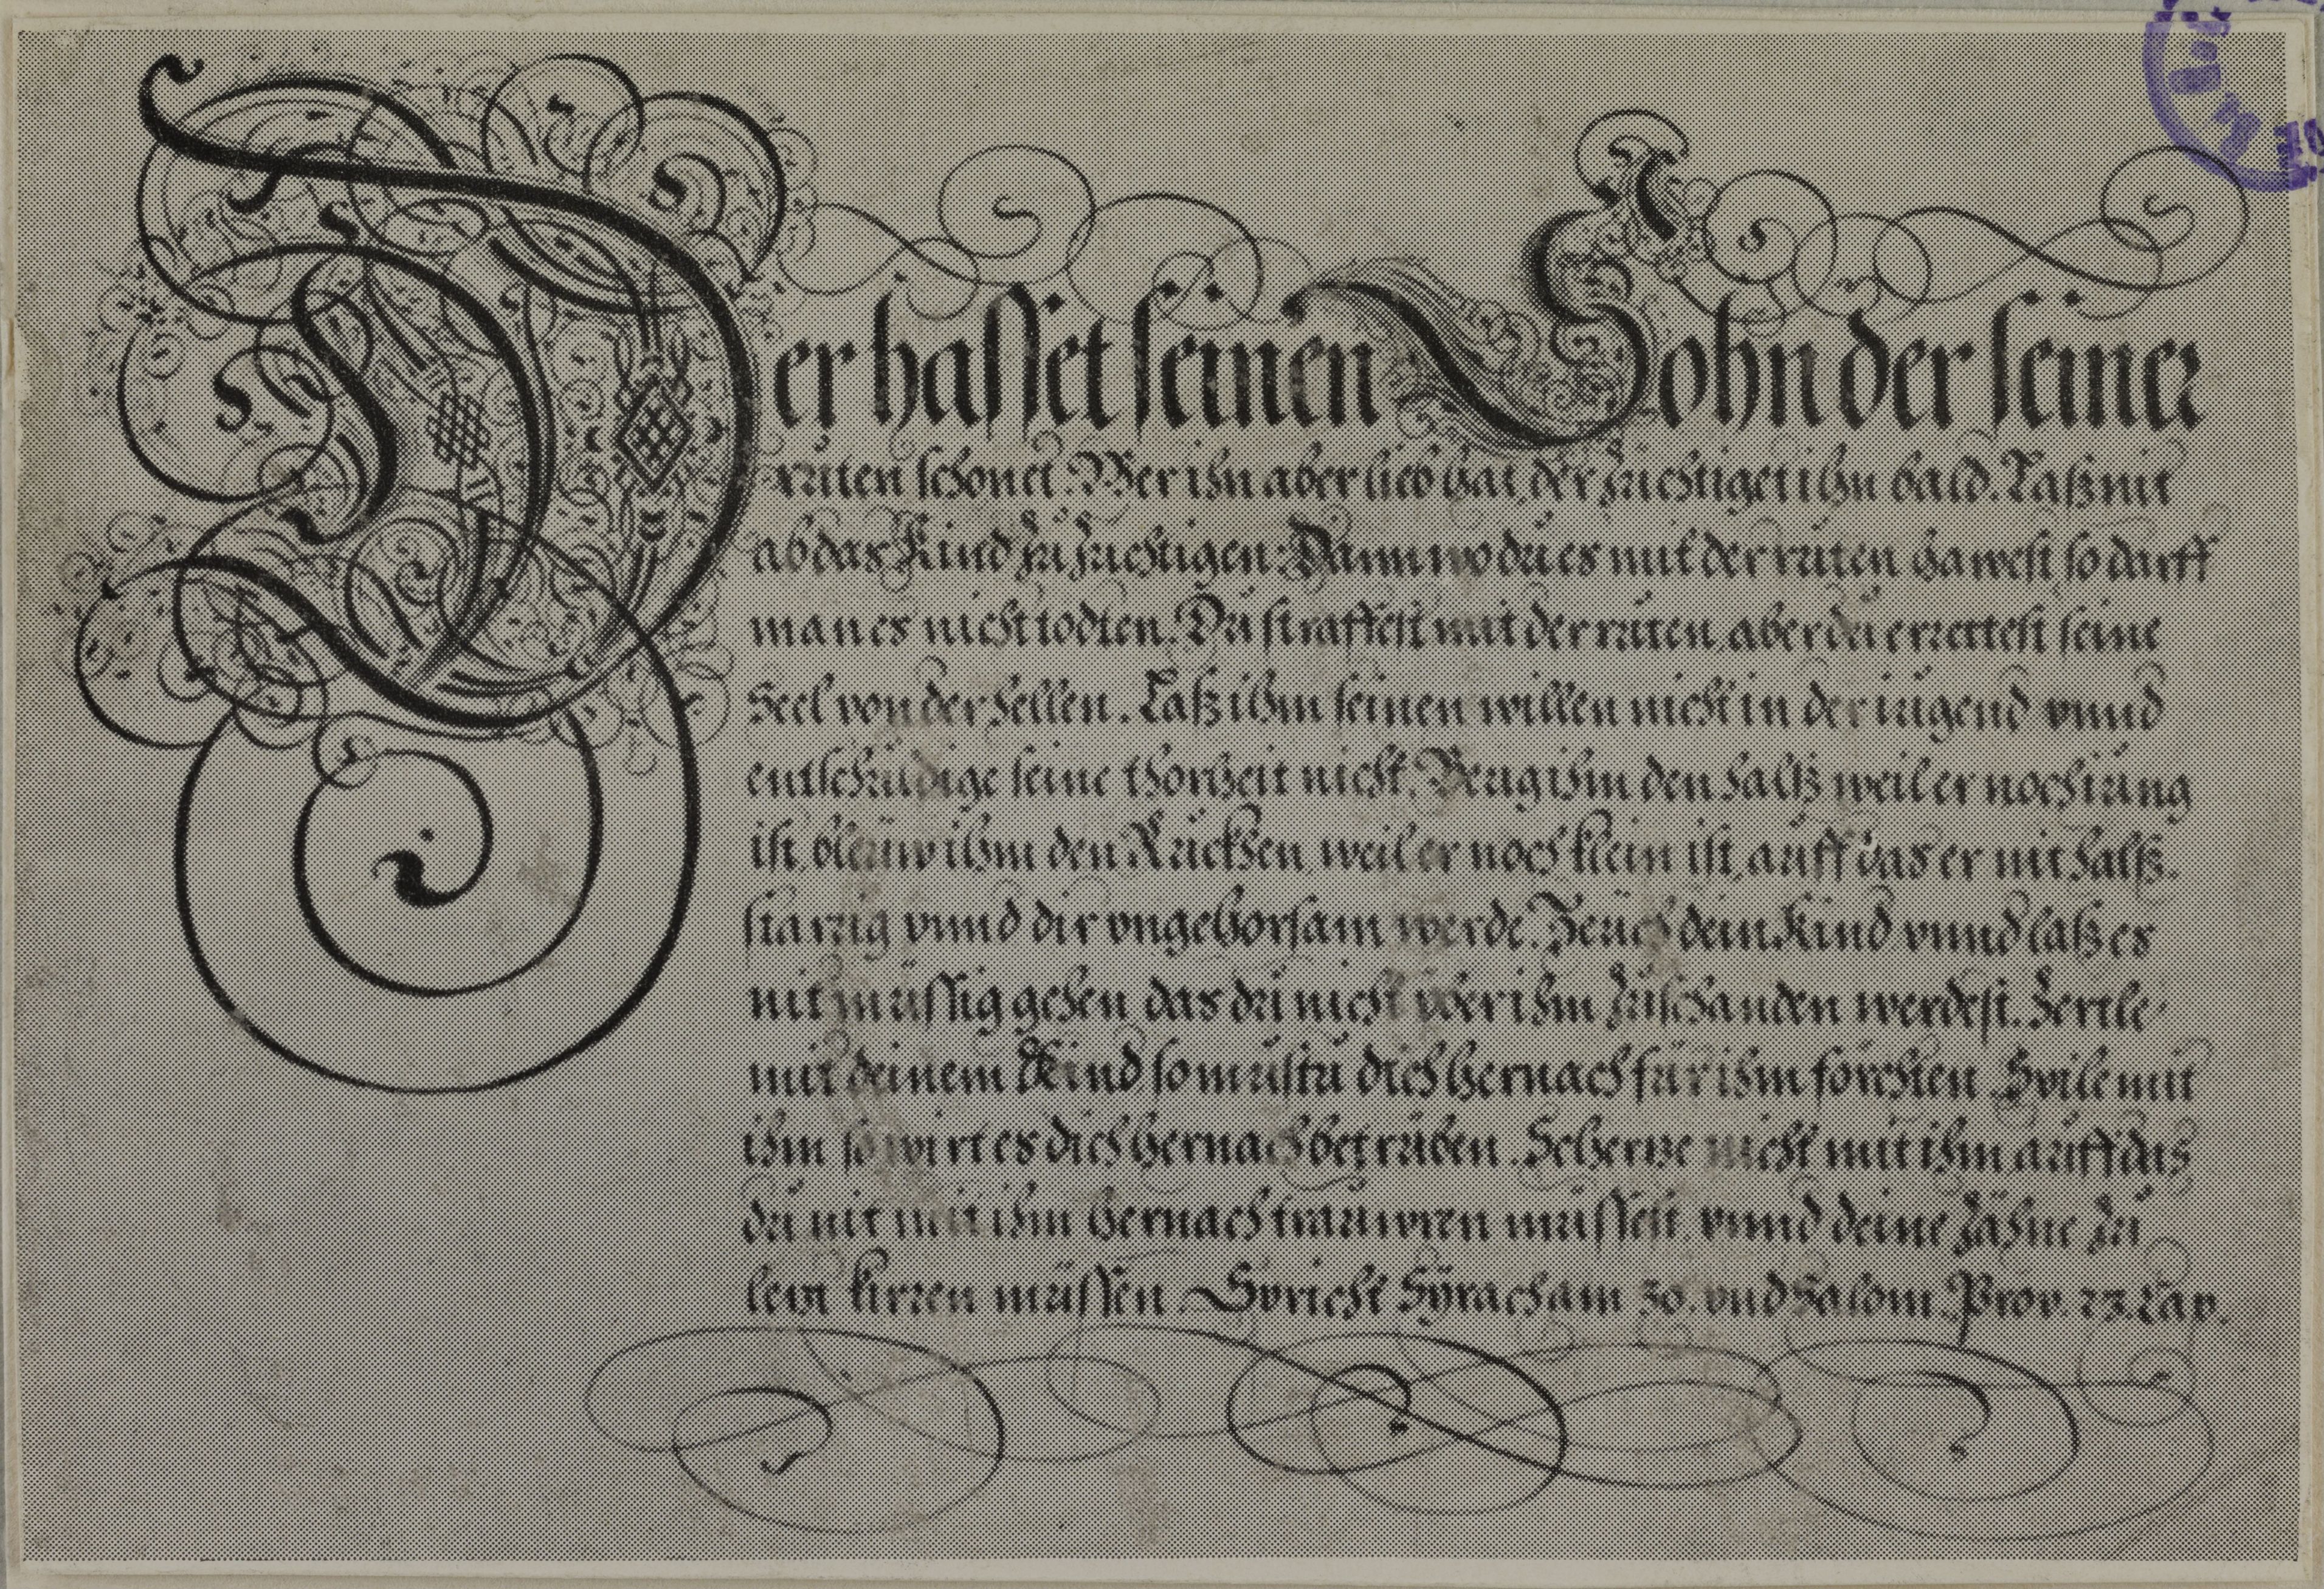 Der hasset seinen Sohn der seiner
rüten schonet. Wer ihn aber lieb hat, der züchtiget ihn bald. Laß nit
ab das Kind zu züchtigen: Dann wo du es mit der rüten hawest so darff
man es nicht tödten. Du straffest mit der rüten, aber du errettest seine
Seel von der Hellen. Laß ihm seinen willen nicht in der iugend vnnd
entschüldige seine thorheit nicht. Beug ihm den Halß weil er noch iung
ist, bleüw ihm den Ruckhen, weil er noch klein ist, auff das er nit halß-
starrig vnnd dir vngehorsam werde. Zeüch dein Kind vnnd laß es
nit müssig gehen das du nicht über ihm zu schanden werdest. Zertle
mit deinem Kind so mustu dich hernach für ihm förchten Spile mit
ihm so wirt es dich hernach betrüben. Schertze nicht mit ihm auff das
du nit mit ihm hernach trauwren müssest, vnnd deine Zähne zu
letst kirren müssen. Spricht Syrach am 30. vnd Salom. Prov. 23. Cap.